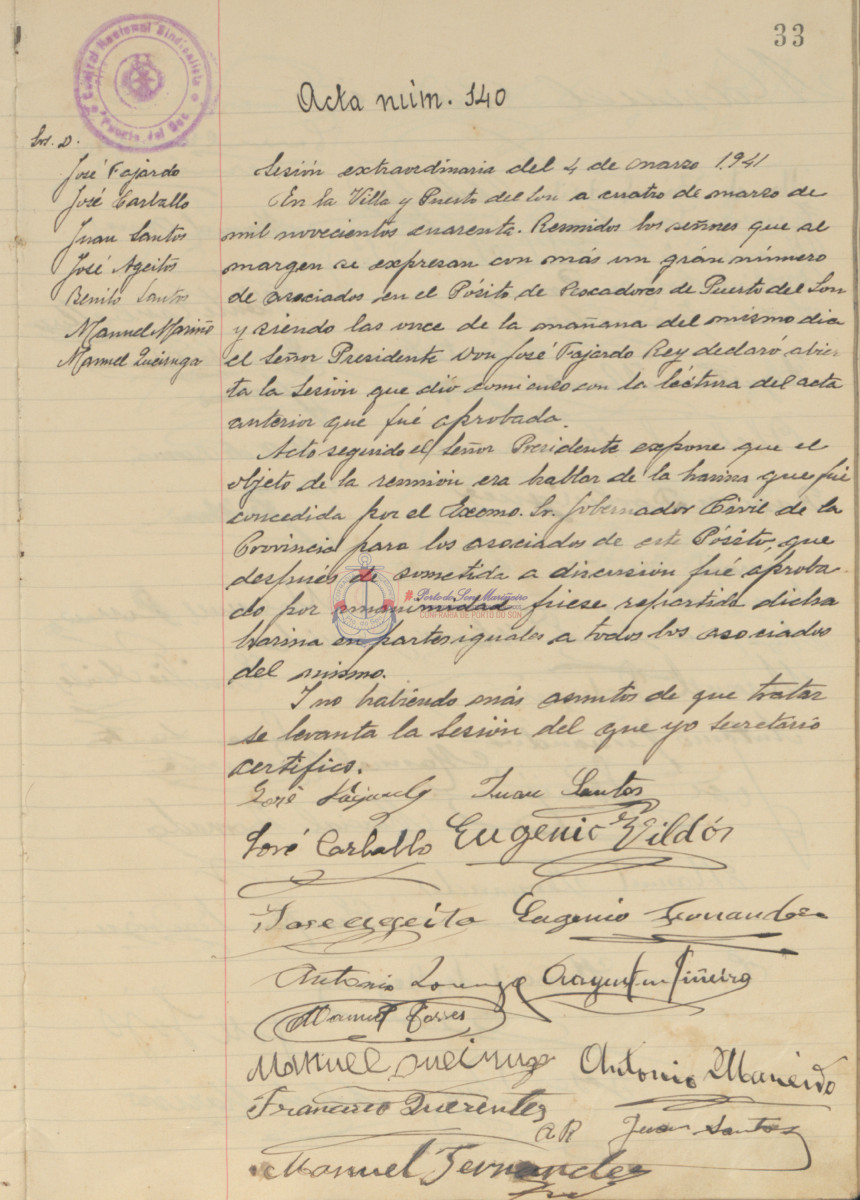 33
Central Nacional Sindicalista
Puerto del Son
Acta núm. 140
Srs. D.
José Fajardo
José Carballo
Juan Santos
José Ageitos
Benito Santos
Manuel Mariño
Manuel Queiruga
Sesión extraordinaria del 4 de marzo 1.941
En la Villa y Puerto del Son a cuatro de marzo de
mil novecientos cuarenta. Reunidos los señores que al
margen se expresan con más un grán número
de asociados en el Pósito de Pescadores de Puerto del Son
y siendo las once de la mañana del mismo dia
el Señor Presidente Don José Fajardo Rey declaró abier-
ta la Sesión que dió comienzo con la léctura del acta
anterior que fué aprobada.
Acto seguido el Señor Presidente expone que el
objeto de la reunión era hablar de la harina que fué
concedida por el Excmo. Sr. Gobernador Civil de la
Provincia para los asociados de este Pósito, que
después de sometida a discusión fué aproba-
do por unanimidad fuese repartida dicha
harina en partes iguales a todos los asociados
del mismo.
I no habiendo más asuntos de que tratar
se levanta la Sesión del que yo Secretario
certifico.
Porto do Son Mariñeiro
CONFRARÍA DE PORTO DO SON
José Fajardo Juan Santos
José Carballo Eugenio
Jose ageito Eugenio Fernandez
Antonio Lorenzo Piñeiro
Manuel Torres
Manuel Queiruga Antonio Maneiro
Francisco
AR Juan Santos
Manuel Fernandez